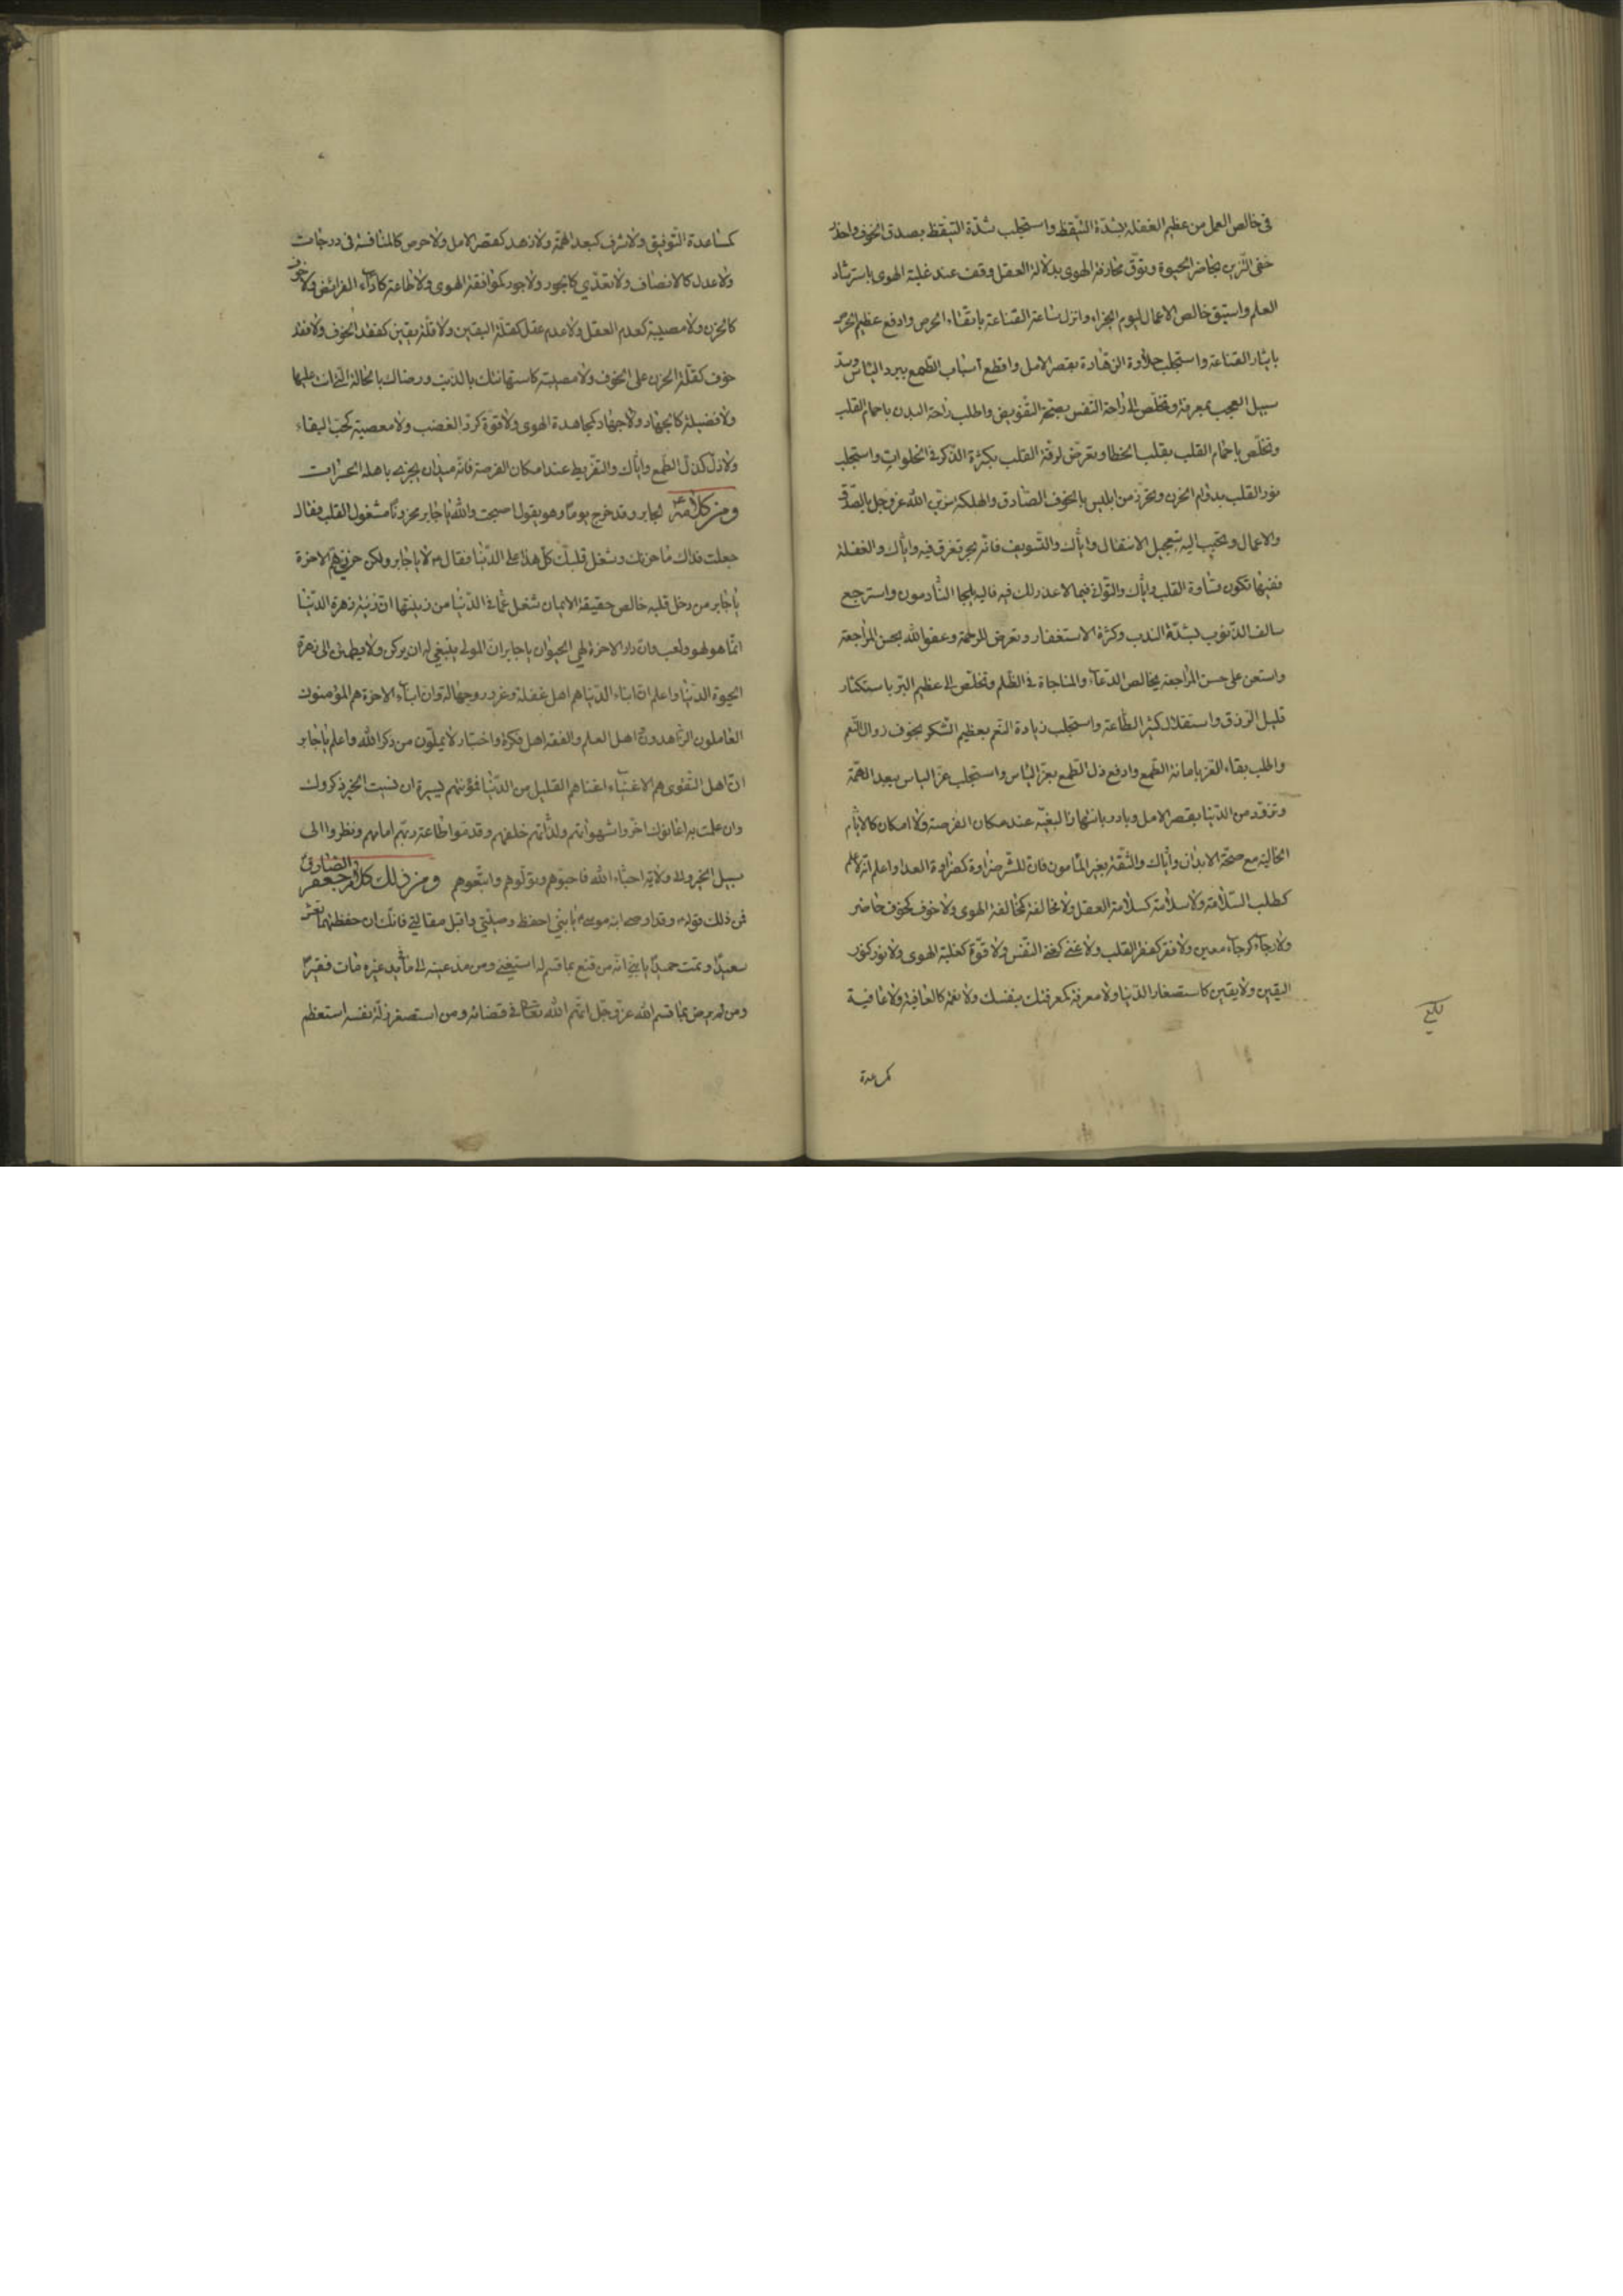 فى خالص العمل من عظيم الغفلة بشدّة التّيقظ واستجلب شدّة التيقّظ بصدق الخوف واحذر
خفى التّزين بحاضر الحيوة وتوقّ مجازفة الهوى بدلالة العقل وقف عند غلبة الهوى باسترشاد
العلم واستبق خالص الاعمال ليوم الجزاء وانزل ساحة القناعة باتقاء الحرص وادفع عظيم الحرص
بايثار القناعة واستجلب حلاوة الزهادة بقصر الامل واقطع اسباب الطمع ببرد الياس وسدّ
سبيل العجب بمعرفة وتخلّص الى راحة النّفس بصحّة التّفويض واطلب راحة البدن باجمام القلب
وتخلّص باجمام القلب بقلب الخطا وتعرّض لرقّة القلب بكثرة الذّكر فى الخلوات واستجلب
نور القلب بدوام الحزن وتحرّز من ابليس بالخوف الصّادق والهلكة بين الله عزّوجل بالصّدق
والاعمال وتحبّب اليه بتعجيل الانتقال وايّاك والتّسويف فانّه بحر تغرق فيه وايّاك والغفلة
ففيها تكون قساوة القلب وايّاك والتّوانى فيما لا عذر لك فيه فاليه يلجا النّادمون واسترجع
سالف الذّنوب بشدّة الندم وكثرة الاستغفار وتعرض للرحمة وعفو الله بحسن المراجعة
واستعن على حسن المراجعة بخالص الدّعآء والمناجاة فى الظّلم وتخلّص الى عظيم الشكر باستكثار
قليل الرّزق واستقلال كثير الطّاعة واستجلب زيادة النّعم بعظيم الشّكر بخوف زوال النّعم
واطلب بقاء العزّ باماتة الطّمع وادفع ذلّ الطّمع بعزّ الياس واستجلب عزّ الياس ببعد الهمّة
وتزوّد من الدّنيا بقصر الامل وبادر بانتهاز البغيّة عند امكان الفرصة ولا امكان كالايّام
الخالية مع صحّة الابدان وايّاك والثّقة بغير المأمون فانّ للشّر ضراوة كضراوة الغذا واعلم انّه لا علم
كطلب السّلامة ولا سلامة كسلامة العقل ولا مخالفة كمخالفة الهوى ولا خوف كخوف حاضر
ولا رجآء كرجآء معين ولا فقر كفقر القلب ولا غنى كغنى النّفس ولا قوّة كغلبة الهوى ولا نور كنور
اليقين ولا يقين كاستصغار الدّنيا ولا معرفة كمعرفتك بنفسك ولا نعمة كالعافية ولا عافية
كمساعدة
كمساعدة التّوفيق ولا شرف كبعد الهمّة ولا زهد كقصر الامل ولا حرص كالمنافسة فى درجات
ولا عدل كالانصاف ولا تعدّي كالجور ولا جور كموافقة الهوى ولا طاعة كادآء الفرائض ولا خوف
كالحزن ولا مصيبة كعدم العقل ولا عدم عقل كقلّة اليقين ولا قلّة يقين كفقد الخوف ولا فقد
خوف كقلّة الحزن على الخوف ولا مصيبة كاستهانتك بالذّنب ورضاك بالحالة الّتى انت عليها
ولا فضيلة كالجهاد ولا جهاد كمجاهدة الهوى ولا قوّة كردّ الغضب ولا معصية كحبّ البقاء
ولا ذلّ كذلّ الطّمع وايّاك والتّفريط عند امكان الفرصة فانّه ميدان يجرى باهله الخسرات
ومن كلامه لجابر وقد خرج يوما وهو يقول اصبحت والله يا جابر محزونا مشغول القلب فقال
جعلت فداك ما حزنك وشغل قلبك كلّ هذا على الدّنيا فقال لا يا جابر ولكن حزنى همّ الاخرة
يا جابر من دخل قلبه خالص حقيقة الايمان شغل عمّا فى الدّنيا من زينتها انّ زينة زهرة الدّنيا
انّما هو لهو ولعب وانّ دار الاخرة لهي الحيوان يا جابر انّ المؤمن لا ينبغى له ان يركن ولا يطمئن الى زهرة
الحيوة الدّنيا واعلم انّ ابناء الدّنيا هم اهل غفلة وغرور وجهالة وان ابنآء الاخرة هم المؤمنون
العاملون الزّاهدون اهل العلم والفقه اهل فكرة واختبار لا يملّون من ذكر الله واعلم يا جابر
انّ اهل التّقوى هم الاغنيآء اغناهم القليل من الدّنيا فمؤنتهم يسيرة ان نسيت الخير ذكروك
وان عملت به اعانوك اخّروا شهواتهم ولذّاتهم خلفهم وقدّموا طاعة ربّهم امامهم ونظروا الى
سبيل الخير والى ولاية احبّاء الله فاحبّوهم وتولّوهم واتّبعوهم ومن ذلك كلام جعفر الصّادق
فمن ذلك قوله وقد اوصى ابنه موسى يا بنيّ احفظ وصيّتى واقبل مقالتى فانّك ان حفظتهما تعش
سعيدا وتمت حميدا يا بنيّ انّه من قنع بما قسم له استغنى ومن مدّ عينه الى ما فى يد غيره مات فقيرا
ومن لم يرض بما قسم الله عزّوجلّ اتّهم الله تعالى فى قضائه ومن استصغر زلّة نفسه استعظم